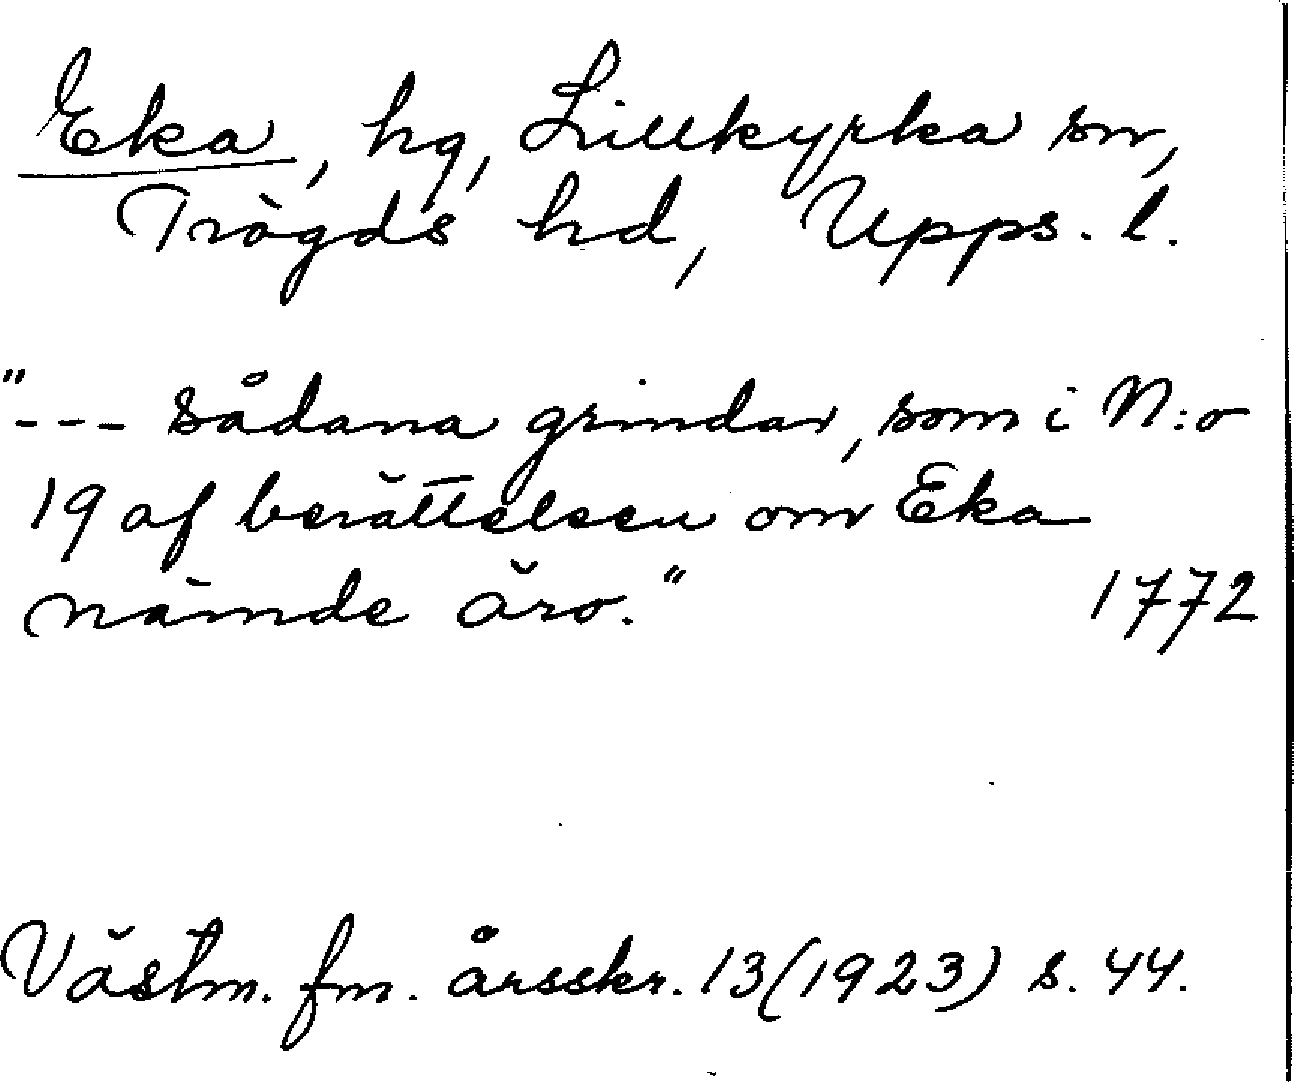 Eka, hg, Lillkyrka sn,
Trögds hd, Upps. l.
"--- sådana grindar, som i N:o
19 af berättelsen om Eka
nämde äro."
1772
Västm. fm. årsskr. 13(1923) s. 44.